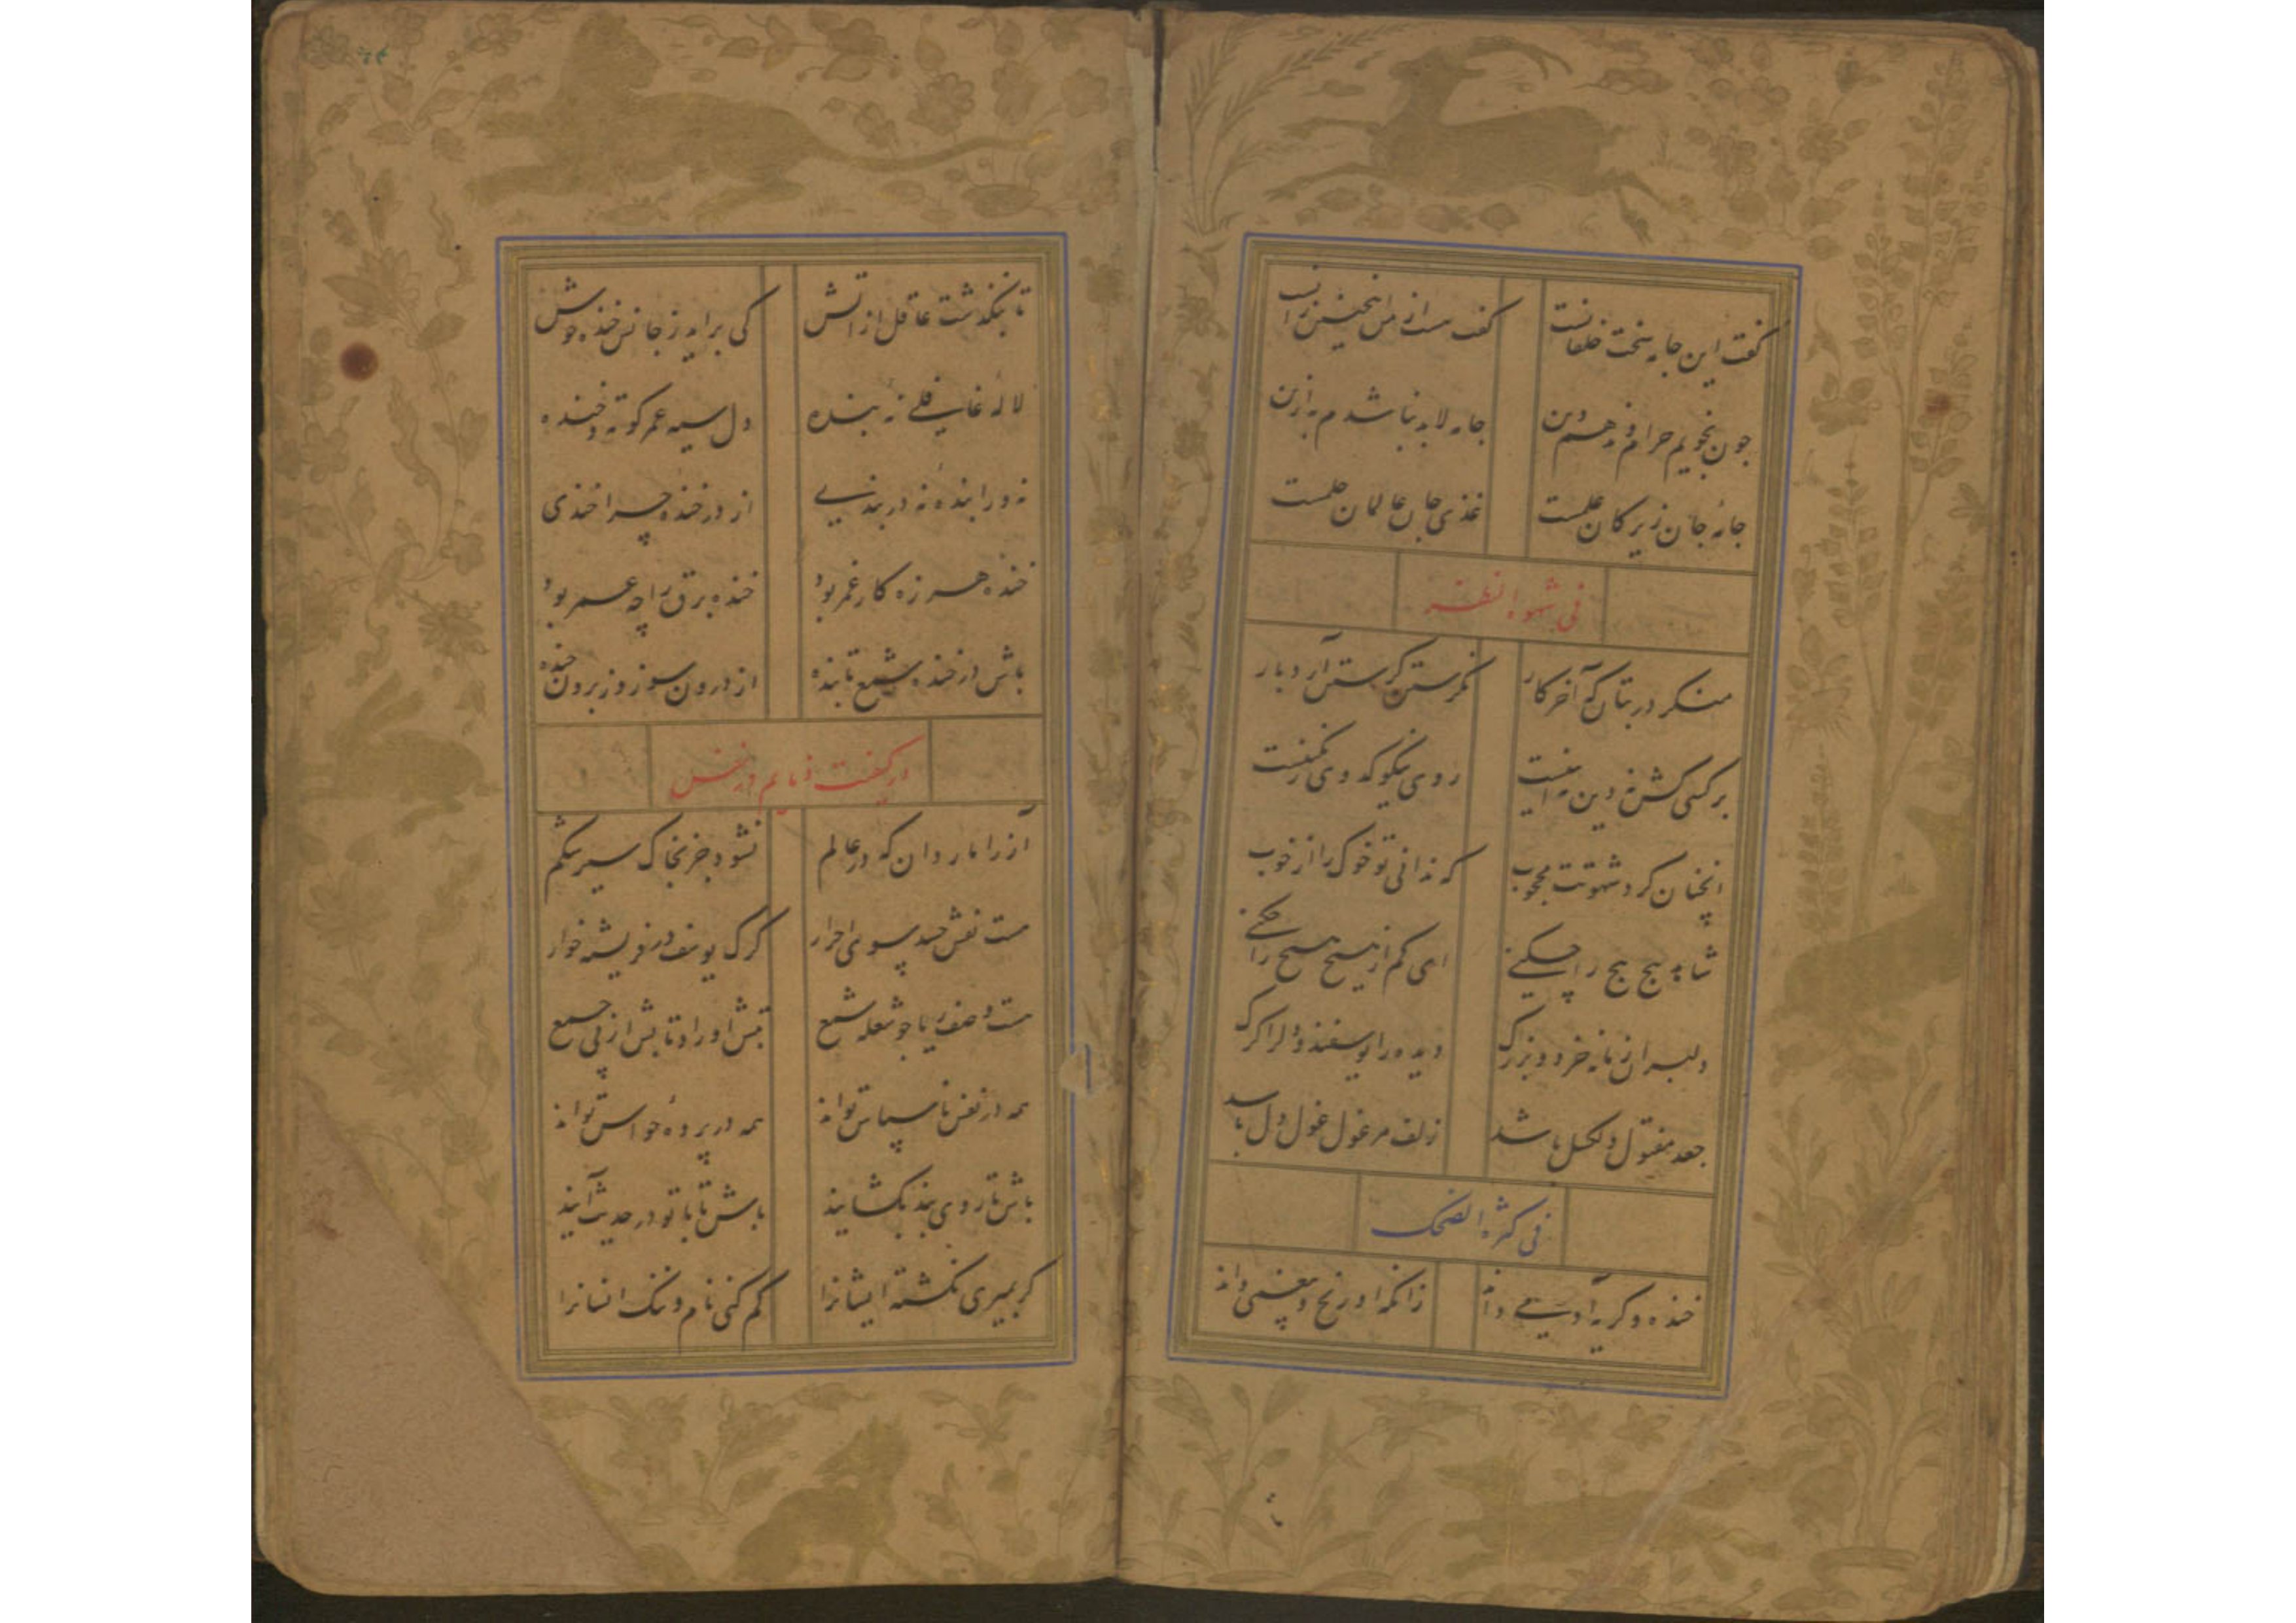 گفت این جامه سخت خلقانست گفت هست از من اینچنین زانست
چون نجویم حرام و ندهم دین جامه لابد نباشدم به ازین
جامهٔ جان زیرکان علمست غذی جان عالمان حلمست
فی شهوة النظر
منگر در بتان که آخر کار نگرستن گرستن آرد بار
برکسی کش نه دین نه آیین است روی نیکو که وی
آنچنان کرد شهوتت محجوب که ندانی تو خوک را از خوب
شاهد پیچ پیچ را چکنی ای کم از هیچ هیچ را چکنی
دلبران زمانه خرد و بزرگ دیده را یوسفند و دل را گرگ
جعد مفتول دلگسل باشد زلف مرغول غول دل باشد
فی کثرة الضحک
خنده و گریه آدمی داند زانکه او رنج و بیغمی داند
تا بنگذشت عاقل از آتش کی برآید ز جانش خنده خوش
لاله غافلی نه بنده دل سیه عمر کوته و خنده
نه ورا بندهٔ نه در بندی از در خندهٔ چرا خندی
خنده هرزه کار غمر بود خنده برق را چه عمر بود
باش در خنده شمع تابنده از درون سوز وز برون خنده
در نفس
آز را مار دان که در عالم نشود جز بخاک سیر شکم
هست نقش حسد بسوی احرار گرگ یوسف در فریشته خوار
هست وصف ریا چو شعله شمع تبش او را و تابش از پی جمع
همه در نفس ناسپاس تواند همه در پردهٔ حواس تواند
باش تا روی بند بگشایند باش تا با تو در حدیث آیند
گر بمیری نکشته ایشانرا کم کنی نام و ننگ انسانرا